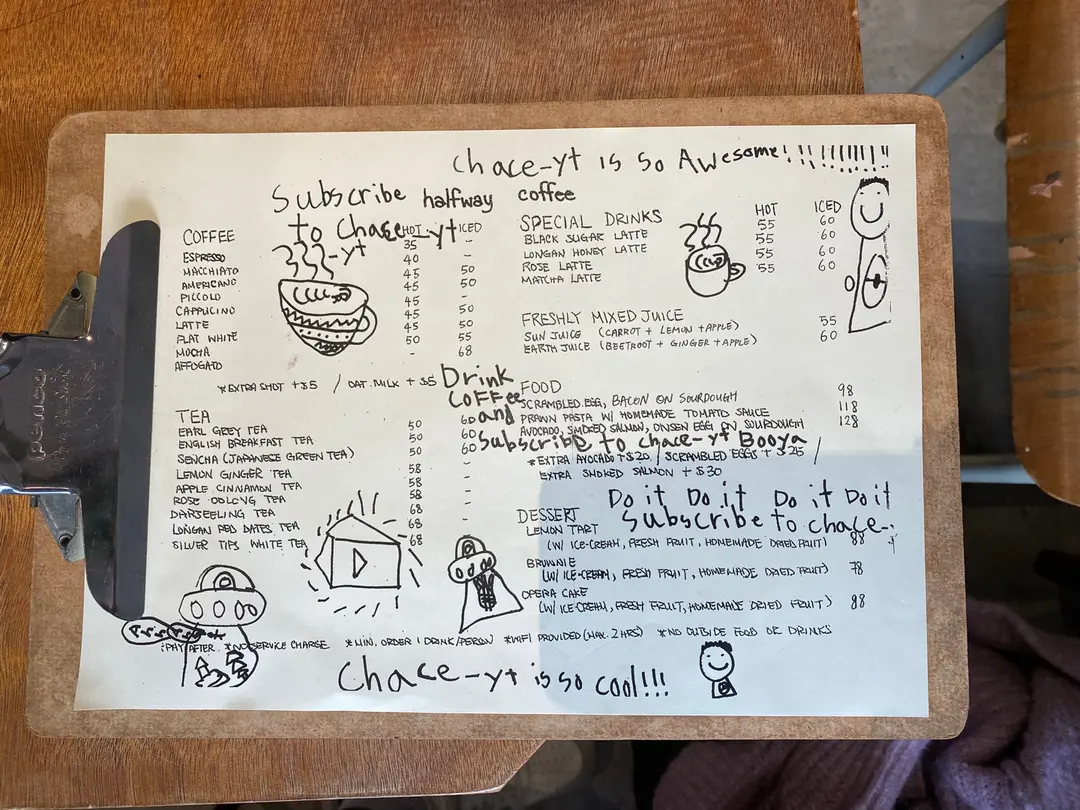 Chace-yt is so Awesome!!!!!!!!!!
Subscribe halfway coffee
to Chace-yt
-yt
COFFEE HOT ICED
ESPRESSO 35 -
MACCHIATO 40 -
AMERICANO 45 50
PICCOLO 45 50
CAPPUCINO 45 -
LATTE 45 50
FLAT WHITE 45 50
MOCHA 50 55
AFFOGATO - 68
*EXTRA SHOT +$5 / OAT MILK +$5
TEA
EARL GREY TEA 50 60
ENGLISH BREAKFAST TEA 50 60
SENCHA (JAPANESE GREEN TEA) 50 60
LEMON GINGER TEA 58 -
APPLE CINNAMON TEA 58 -
ROSE OOLONG TEA 58 -
DARJEELING TEA 68 -
LONGAN RED DATES TEA 68 -
SILVER TIPS WHITE TEA 68 -
SPECIAL DRINKS HOT ICED
BLACK SUGAR LATTE 55 60
LONGAN HONEY LATTE 55 60
ROSE LATTE 55 60
MATCHA LATTE 55 60
FRESHLY MIXED JUICE
SUN JUICE (CARROT + LEMON + APPLE) 55
EARTH JUICE (BEETROOT + GINGER + APPLE) 60
Drink
Coffee
and
Subscribe to chace-yt Booya
FOOD
SCRAMBLED EGG, BACON ON SOURDOUGH 98
PRAWN PASTA W/ HOMEMADE TOMATO SAUCE 118
AVOCADO, SMOKED SALMON, ONSEN EGG ON SOURDOUGH 128
*EXTRA AVOCADO +$20 / SCRAMBLED EGGS +$25 /
EXTRA SMOKED SALMON +$30
Do it Do it Do it Do it
Subscribe to chace-yt
DESSERT
LEMON TART
(W/ ICE-CREAM, FRESH FRUIT, HOMEMADE DRIED FRUIT) 88
BROWNIE
(W/ ICE-CREAM, FRESH FRUIT, HOMEMADE DRIED FRUIT) 78
OPERA CAKE
(W/ ICE-CREAM, FRESH FRUIT, HOMEMADE DRIED FRUIT) 88
*PAY AFTER *NO SERVICE CHARGE *MIN. ORDER 1 DRINK/PERSON *WIFI PROVIDED (MAX. 2 HRS) *NO OUTSIDE FOOD OR DRINKS
Chace-yt is so cool!!!